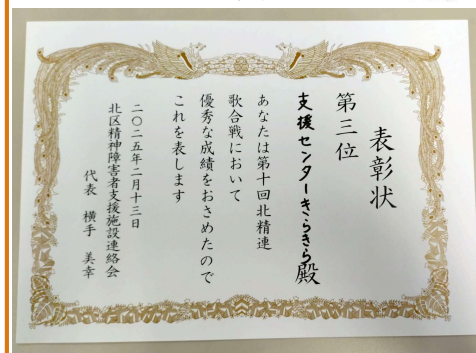 表彰状
第三位
支援センターきらきら殿
あなたは第十回北精連
歌合戦において
優秀な成績をおさめたので
これを表します
二〇二五年二月十三日
北区精神障害者支援施設連絡会
代表 横手 美幸